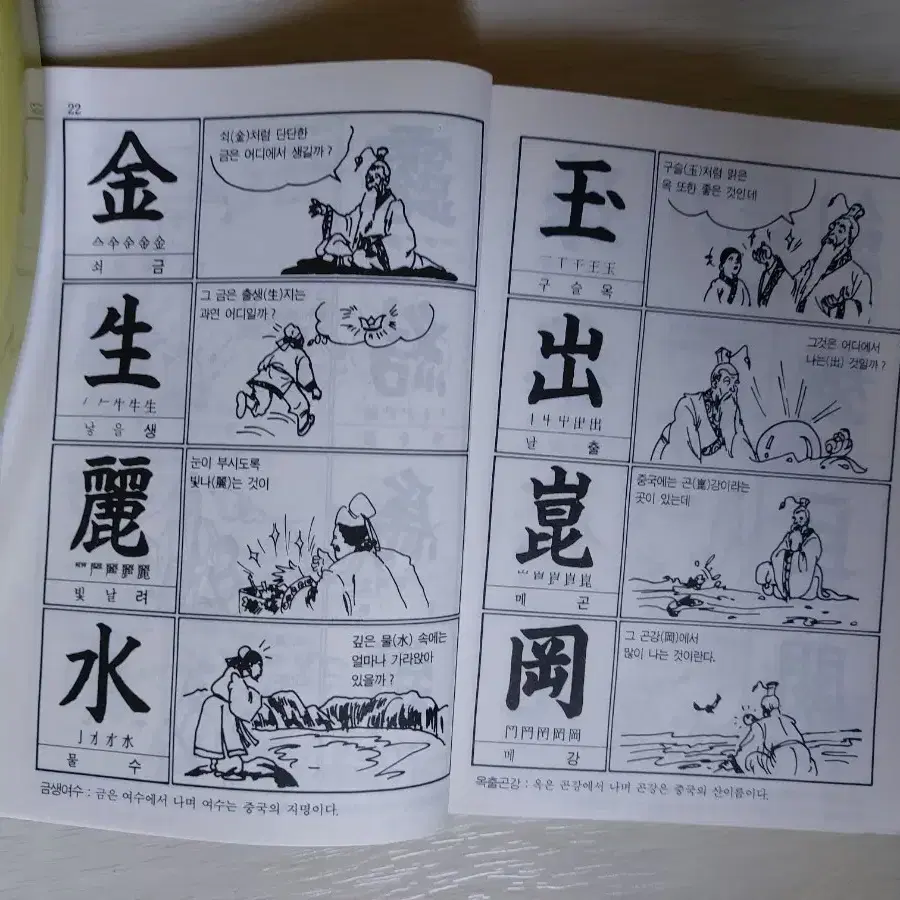 22
金
쇠 금
쇠(金)처럼 단단한
금은 어디에서 생길까?
生
낳을 생
그 금은 출생(生)지는
과연 어디일까?
麗
빛날 려
눈이 부시도록
빛나(麗)는 것이
水
물 수
깊은 물(水) 속에는
얼마나 가라앉아
있을까?
금생여수 : 금은 여수에서 나며 여수는 중국의 지명이다.
玉
구슬 옥
구슬(玉)처럼 맑은
옥 또한 좋은 것인데
出
날 출
그것은 어디에서
나는(出) 것일까?
崑
메 곤
중국에는 곤(崑)강이라는
곳이 있는데
岡
메 강
그 곤강(岡)에서
많이 나는 것이란다.
옥출곤강 : 옥은 곤강에서 나며 곤강은 중국의 산이름이다.